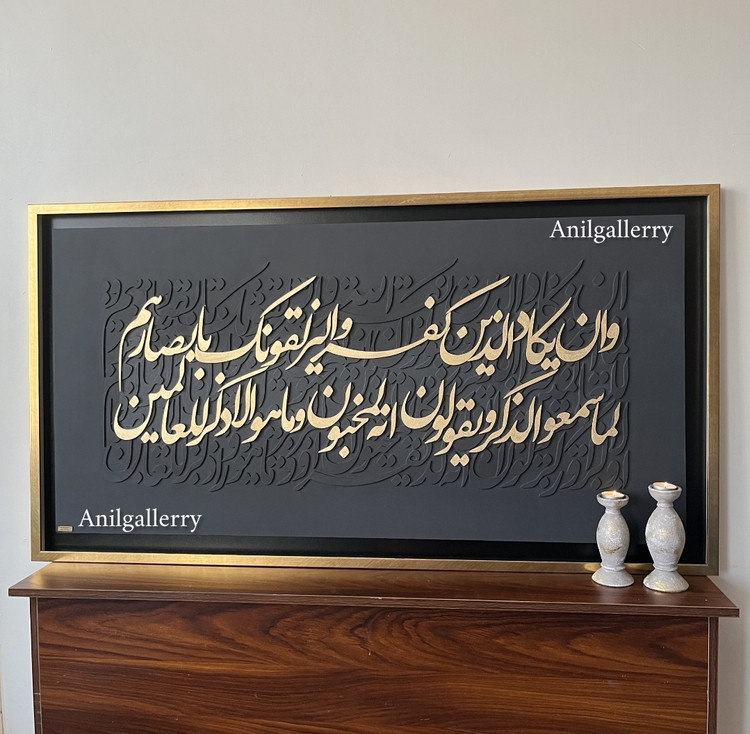 Anilgallerry
وان یکاد الذین کفروا لیزلقونک بابصارهم
لما سمعوا الذکر و یقولون انه لمجنون وما هو الا ذکر للعالمین
Anilgallerry